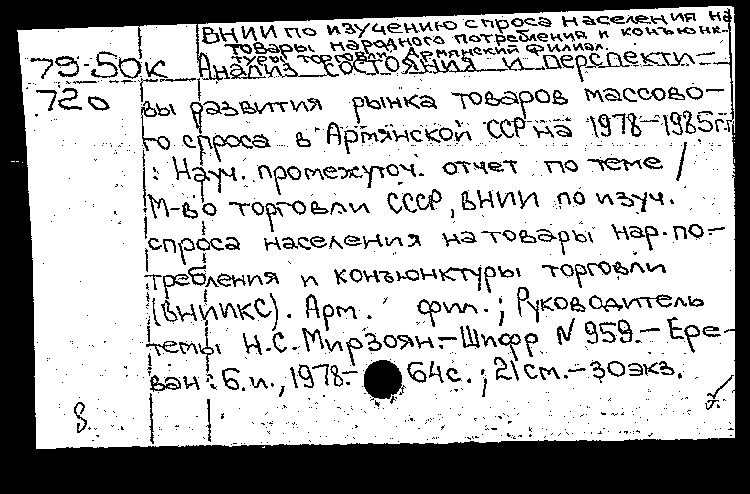 ВНИИ по изучению спроса населения на
товары народного потребления и конъюнк-
туры торговли. Армянский филиал.
79-50к Анализ состояния и перспекти-
720 вы развития рынка товаров массово-
го спроса в Армянской ССР на 1978-1985гг.
: Науч. промежуточ. отчет по теме /
М-во торговли СССР, ВНИИ по изуч.
спроса населения на товары нар. по-
требления и конъюнктуры торговли
(ВНИИКС). Арм. фил.; Руководитель
темы Н.С. Мирзоян.-Шифр N 959.- Ере-
ван: Б.и., 1978.- 64с.; 21см.-30экз.